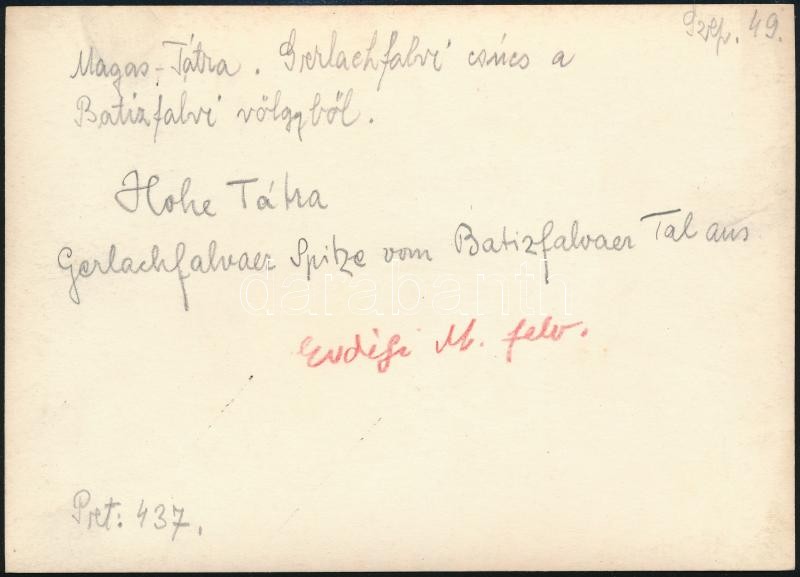 Szep. 49.
Magas-Tátra. Gerlachfalvi csúcs a
Batizfalvi völgyből.
Hohe Tátra
Gerlachfalvaer Spitze vom Batizfalvaer Tal aus
darabanth
Erdégi M. felv.
Pret: 437.